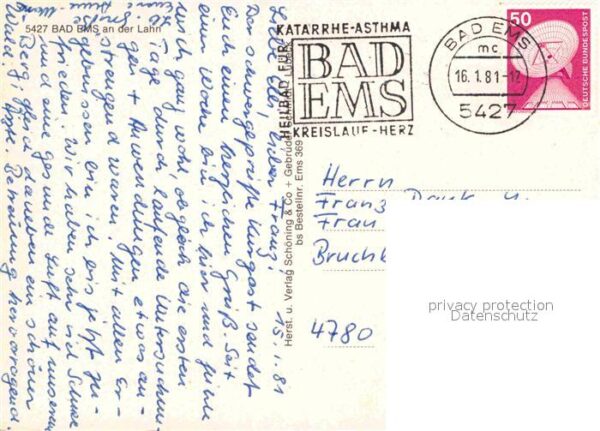 5427 BAD EMS an der Lahn
KATARRHE-ASTHMA
HEILBAD FÜR
BAD
EMS
KREISLAUF-HERZ
BAD EMS
mc
16.1.81-17
5427
50
DEUTSCHE BUNDESPOST
Herst. u. Verlag Schöning & Co + Gebrüder Schmidt
bs Bestellnr. Ems 369
15.1.81
lieber Franz!
Das schwergeprüfte Kurgast sendet
Euch einen herzlichen Gruß. Seit
einer Woche bin ich hier und fühle
mich ganz wohl, obgleich die ersten
Tage durch laufende Untersuchun-
gen + Anwendungen etwas an-
strengend waren. Mit allen Er-
gebnissen bin ich bis jetzt zu-
frieden. Wir haben sehr viel Schnee
und eine gesunde Luft auf unserem
Berg; gleich daneben ein schöner
Wald. Ärzt. Betreuung hervorragend.
Herrn
Franz
Frau
4780
privacy protection
Datenschutz